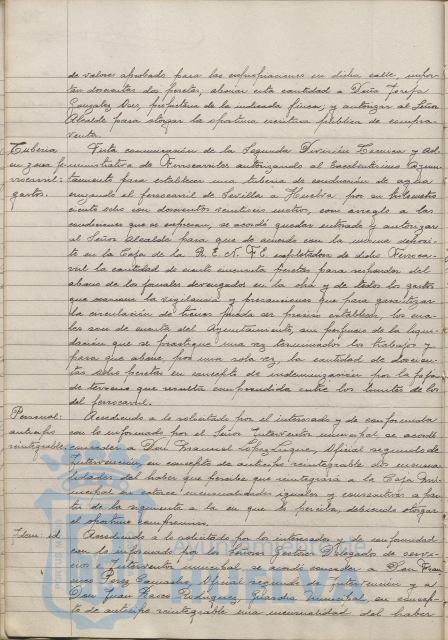 de valores aprobada para las expropiaciones en dicha calle, impor-
tan doscientas dos pesetas, abonar esta cantidad a Doña Josefa
Gonzalez Vaz, propietaria de la indicada finca, y autorizar al Señor
Alcalde para otorgar la oportuna escritura pública de compra-
venta.
Tuberia Vista comunicación de la Segunda División Técnica y Ad-
en zona fe- ministrativa de Ferrocarriles autorizando al Excelentísimo Ayun-
rrocarril: tamiento para establecer una tuberia de conducción de agua
gastos. cruzando el ferrocarril de Sevilla a Huelva por su kilometro
ciento ocho con doscientos veinticinco metros, con arreglo a las
condiciones que se expresan, se acordó quedar enterado y autorizar
al Señor Alcalde para que de acuerdo con la misma deposi-
te en la Caja de la R.E.N.F.E. explotadora de dicho Ferroca-
rril la cantidad de ciento cincuenta pesetas para responder del
abono de los jornales devengados en la obra y de todos los gastos
que ocasione la vigilancia y precauciones que para garantizar
la circulación de trenes pueda ser preciso establecer, los cua-
les son de cuenta del Ayuntamiento, sin perjuicio de la liqui-
dación que se practique una vez terminados los trabajos y
para que abone, por una sola vez, la cantidad de doscien-
tas ocho pesetas en concepto de indemnización por la faja
de terreno que resulta comprendida entre los límites de los
del ferrocarril.
Personal: Accediendo a lo solicitado por el interesado y de conformidad
anticipo con lo informado por el Señor Interventor municipal, se acordó
reintegrable. conceder a Don Manuel López Luque, Oficial segundo de
Intervención, en concepto de anticipo reintegrable dos mensua-
lidades del haber que percibe que reintegrará a la Caja Mu-
nicipal en catorce mensualidades iguales y consecutivas a par-
tir de la siguiente a la en que lo perciba, debiendo otorgar
el oportuno compromiso.
Idem. id. Accediendo a lo solicitado por los interesados y de conformidad
con lo informado por los Señores Gestor Delegado de servi-
cios e Interventor municipal, se acordó conceder a Don Fran-
cisco Perez Camacho, Oficial segundo de Intervención y a
Don Juan Rodriguez, Guardia Municipal, en concep-
to de anticipo reintegrable una mensualidad del haber
Ayuntamiento de